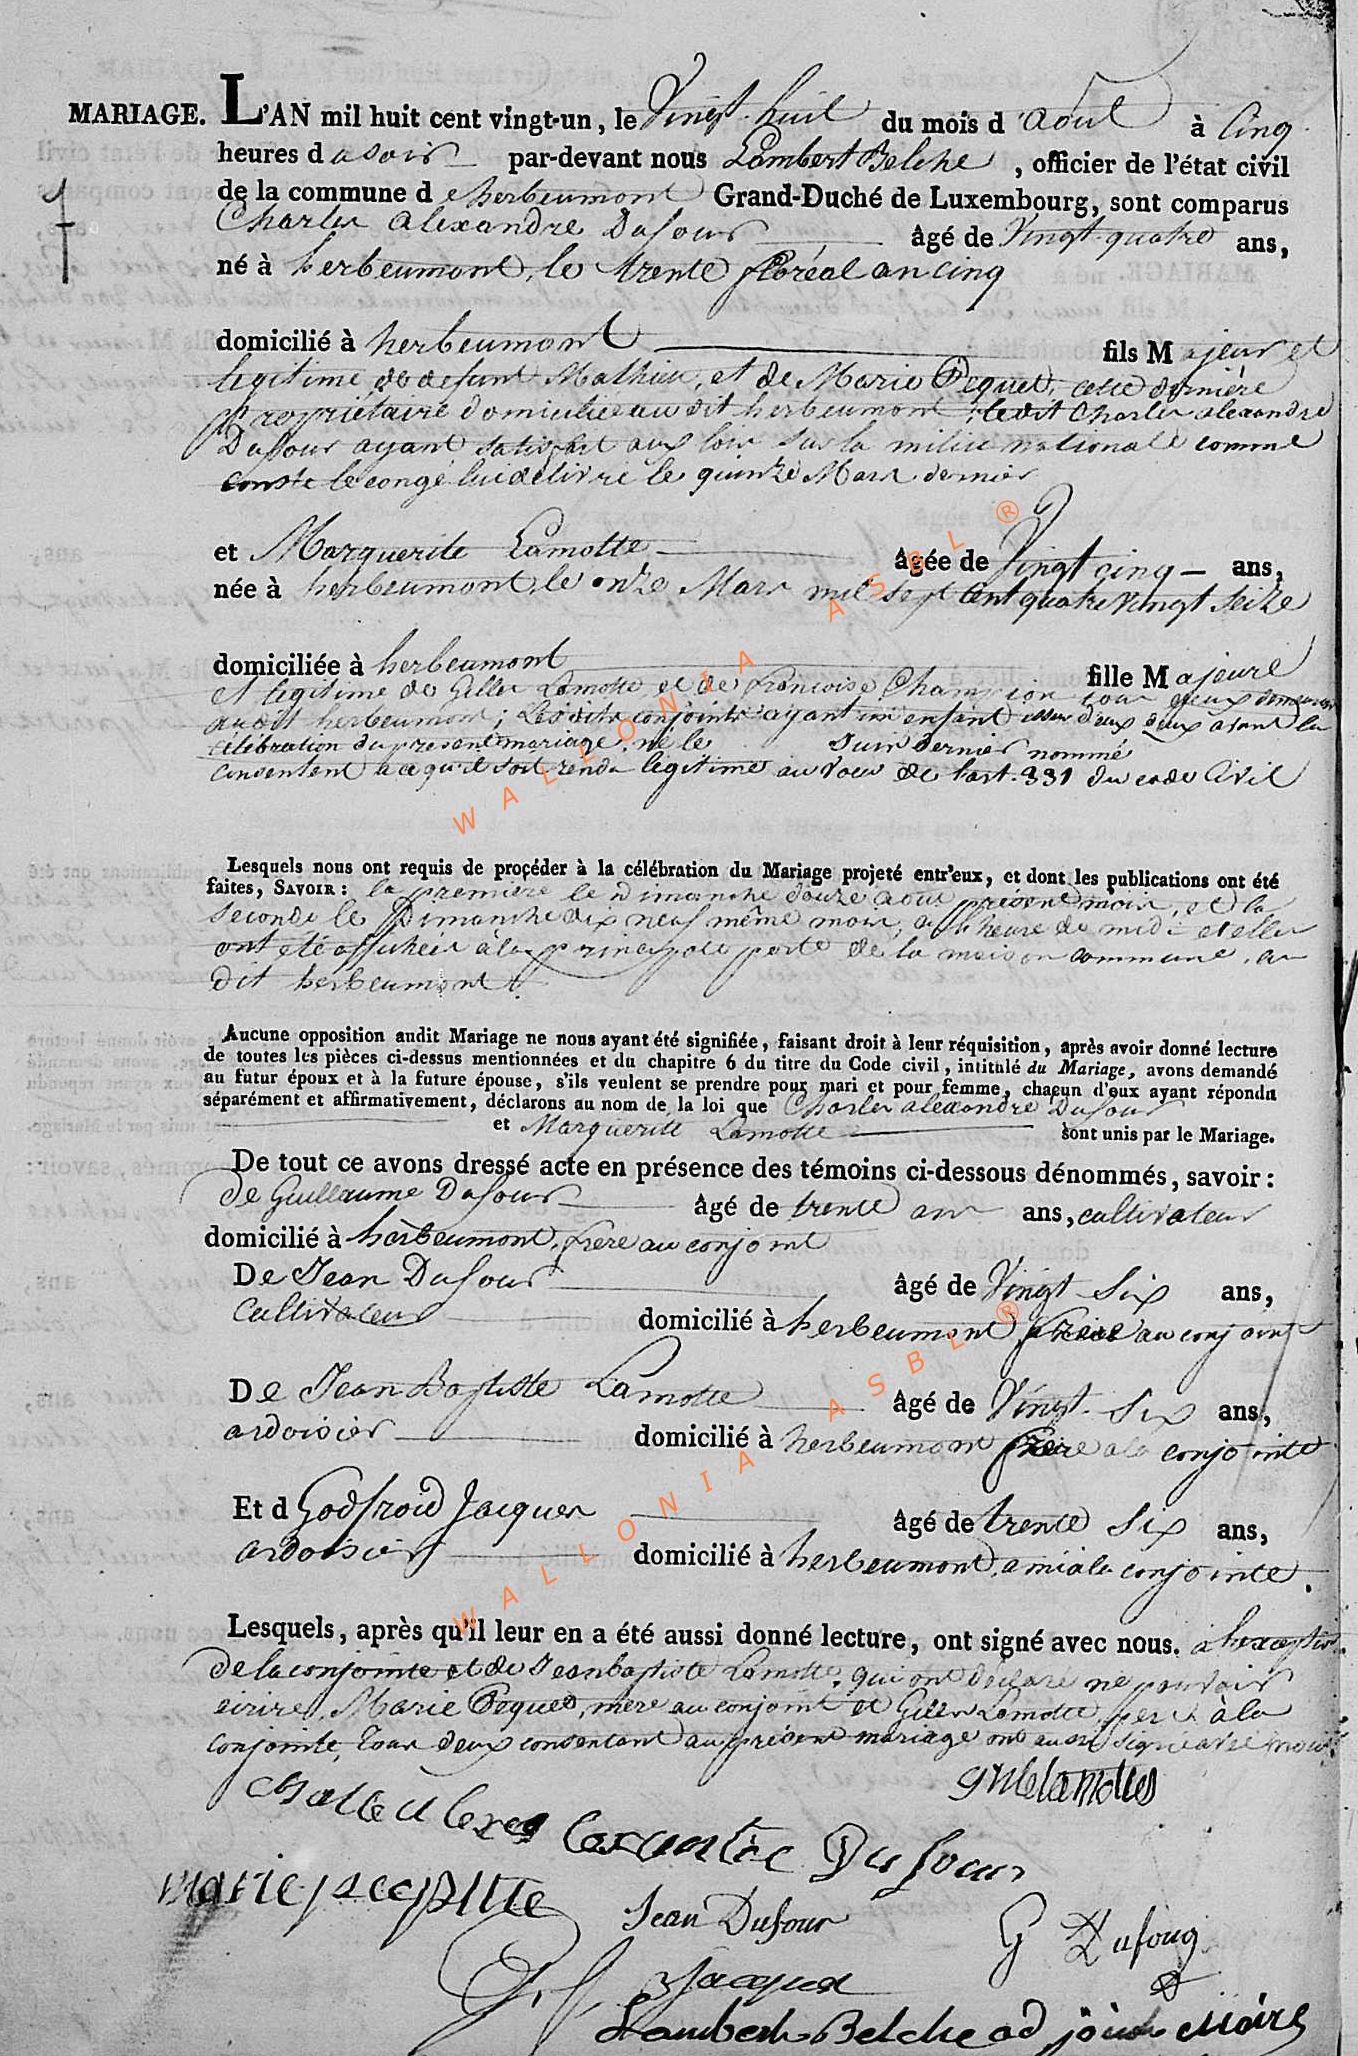 MARIAGE. L'AN mil huit cent vingt-un, le Vingt-huit du mois d'août à Cinq
heures dusoir par-devant nous Lambert Belche, officier de l'état civil
de la commune d'herbeumont Grand-Duché de Luxembourg, sont comparus
Charles alexandre Dufour âgé de Vingt-quatre ans,
né à herbeumont, le trente floréal an cinq
domicilié à herbeumont fils Majeur et
legitime de defunt Mathieu, et de Marie Pequet, cette dernière
Propriétaire domiciliée au dit herbeumont, ledit Charles alexandre
Dufour ayant satisfait aux lois sur la milice nationale comme
conste le congé lui délivré le quinze Mars dernier
et Marguerite Lamotte âgée de Vingt cinq ans,
née à herbeumont, le onze Mars mil sept Cent quatre vingt Seize
domiciliée à herbeumont fille Majeure
et legitime de Gilles Lamotte et de francoise Champion tous deux
audit herbeumont; Lesdits conjoints ayant un enfant issu d'eux deux avant la
célébration du present mariage, né le juin dernier nommé
consentent a ce qu'il soit rendu legitime au voeu de l'art. 331 du code Civil
Lesquels nous ont requis de procéder à la célébration du Mariage projeté entr'eux, et dont les publications ont été
faites, SAVOIR: la premiere le Dimanche douze aout présent mois, et la
seconde le Dimanche dix neuf même mois, à l'heure de midi et elles
ont été affichées à la principale porte de la maison commune, au
dit herbeumont.
Aucune opposition audit Mariage ne nous ayant été signifiée, faisant droit à leur réquisition, après avoir donné lecture
de toutes les pièces ci-dessus mentionnées et du chapitre 6 du titre du Code civil, intitulé du Mariage, avons demandé
au futur époux et à la future épouse, s'ils veulent se prendre pour mari et pour femme, chacun d'eux ayant répondu
séparément et affirmativement, déclarons au nom de la loi que Charles alexandre Dufour
et Marguerite Lamotte sont unis par le Mariage.
De tout ce avons dressé acte en présence des témoins ci-dessous dénommés, savoir:
De Guillaume Dufour âgé de trente ans ans, cultivateur
domicilié à herbeumont, frere au conjoint
De Jean Dufour âgé de Vingt Six ans,
Cultivateur domicilié à herbeumont, frere au conjoint
De Jean Baptiste Lamotte âgé de Vingt-Six ans,
ardoisier domicilié à herbeumont frere ala conjointe
Et d Godfroid Jacques âgé de trente Six ans,
ardoisier domicilié à herbeumont, ami ala conjointe.
Lesquels, après qu'il leur en a été aussi donné lecture, ont signé avec nous. à lexception
de la conjointe et de Jean baptiste Lamotte, qui ont déclaré ne pouvoir
ecrire, Marie Pequet, mere au conjoint et Gilles Lamotte, pere à la
conjointe, tous deux consentant au présent mariage ont aussi signé avec nous.
Dufour
Jean Dufour
G Dufour
Jacques
Lambert Belche adjoint Maire
WALLONIA ASBL ®
WALLONIA ASBL ®